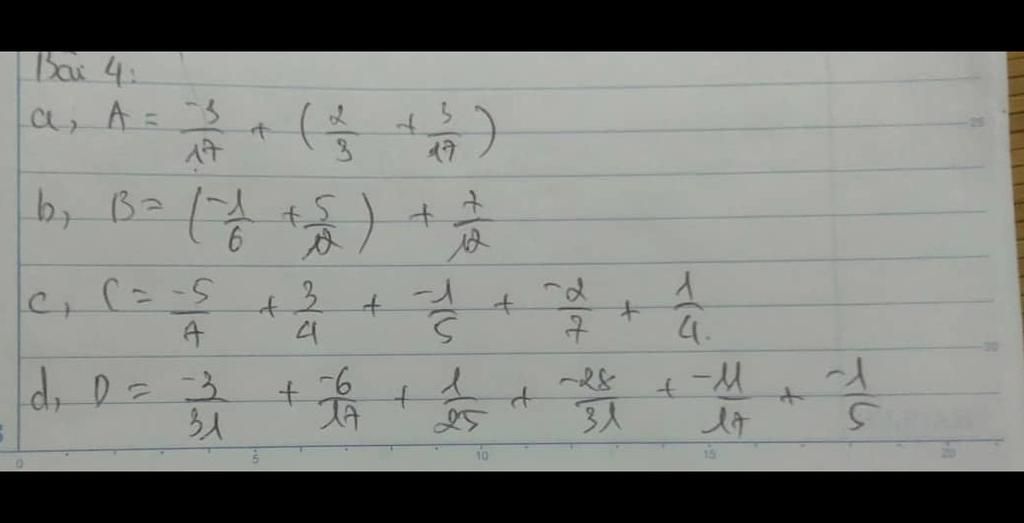 Bài 4:
a, A = -3/17 + (2/3 + 3/17)
b, B = (-1/6 + 5/12) + 7/12
c, C = -5/7 + 3/4 + -1/5 + -2/7 + 1/4.
d, D = -3/31 + -6/17 + 1/25 + -28/31 + -11/17 + -1/5
0 5 10 15 20
25
30